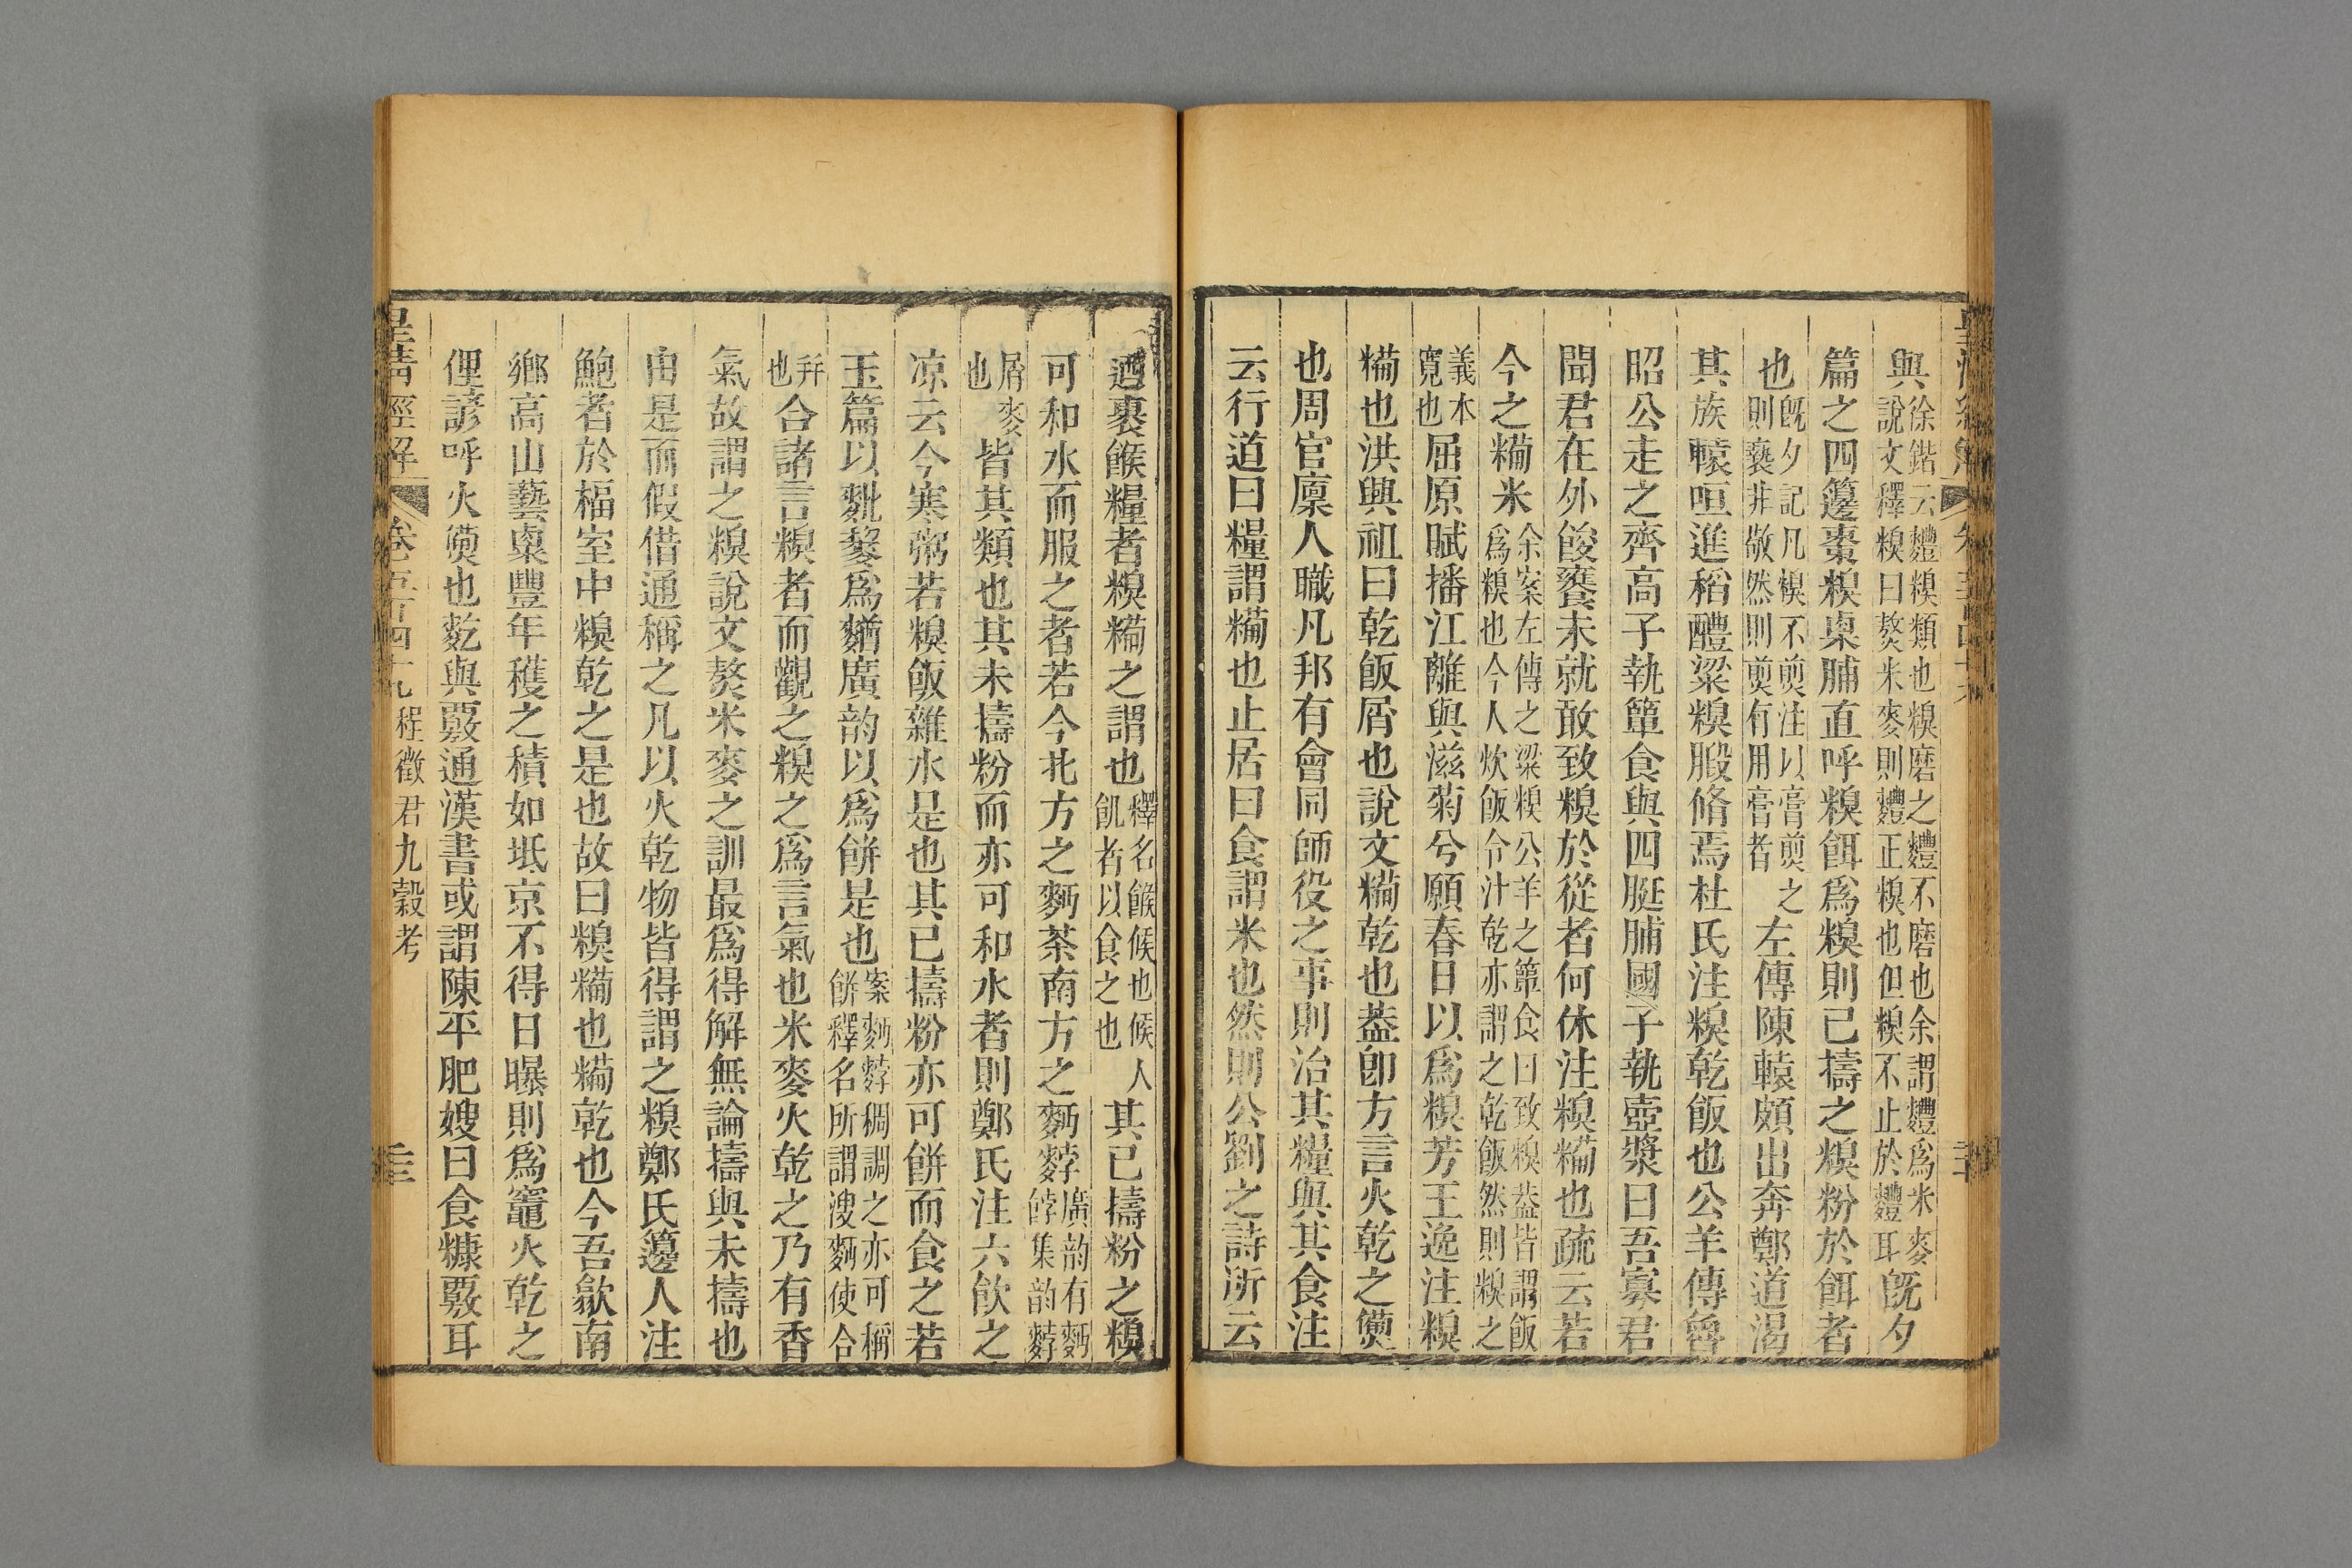 與徐鍇云䵄糗類也糗磨之䵄不磨也余謂䵄爲米麥說文釋糗曰熬米麥則䵄正糗也但糗不止於䵄耳既夕
篇之四籩棗糗㮚脯直呼糗餌爲糗則已擣之糗粉於餌者
也既夕記凡糗不煎注以膏煎之則褻非敬然則煎有用膏者左傳陳轅頗出奔鄭道渴
其族轅咺進稻醴粱糗腶脩焉杜氏注糗乾飯也公羊傳魯
昭公走之齊高子執簞食與四脡脯國子執壺漿曰吾寡君
聞君在外餕饔未就敢致糗於從者何休注糗糒也疏云若
今之糒米余案左傳之粱糗公羊之簞食曰致糗葢皆謂飯爲糗也今人炊飯令汁乾亦謂之乾飯然則糗之
義本寛也屈原賦播江離與滋菊兮願春日以爲糗芳王逸注糗
糒也洪興祖曰乾飯屑也說文糒乾也葢卽方言火乾之㷶
也周官廩人職凡邦有會同師役之事則治其糧與其食注
云行道曰糧謂糒也止居曰食謂米也然則公劉之詩所云
迺裹餱糧者糗糒之謂也釋名餱候也候人飢者以食之也其已擣粉之糗
可和水而服之者若今北方之麪茶南方之麪䴸廣韵有麪䴸集韵䴸
屑麥也皆其類也其未擣粉而亦可和水者則鄭氏注六飮之
凉云今寒粥若糗飯雜水是也其已擣粉亦可餅而食之若
玉篇以麨䴢爲䵌廣韵以爲餅是也案麪䴸稠調之亦可稱餅釋名所謂溲麪使合
幷也合諸言糗者而觀之糗之爲言氣也米麥火乾之乃有香
氣故謂之糗說文熬米麥之訓最爲得解無論擣與未擣也
由是而假借通稱之凡以火乾物皆得謂之糗鄭氏籩人注
鮑者於楅室中糗乾之是也故曰糗糒也糒乾也今吾歙南
鄉高山藝㮚豐年穫之積如坻京不得日曝則爲竈火乾之
俚諺呼火㷶也麧與覈通漢書或謂陳平肥嫂曰食糠覈耳
皇淸經解
卷五百四十九
程徵君九穀考